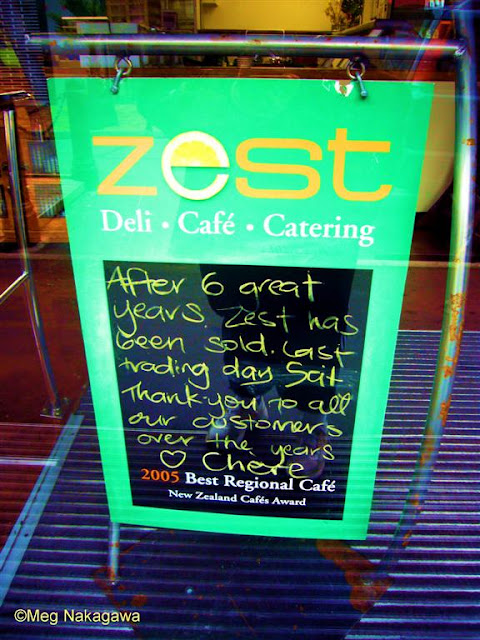 zest
Deli • Café • Catering
After 6 great
years. Zest has
been sold. Last
trading day Sat
Thankyou to all
our customers
over the years
♡ Chere
2005 Best Regional Café
New Zealand Cafés Award
©Meg Nakagawa